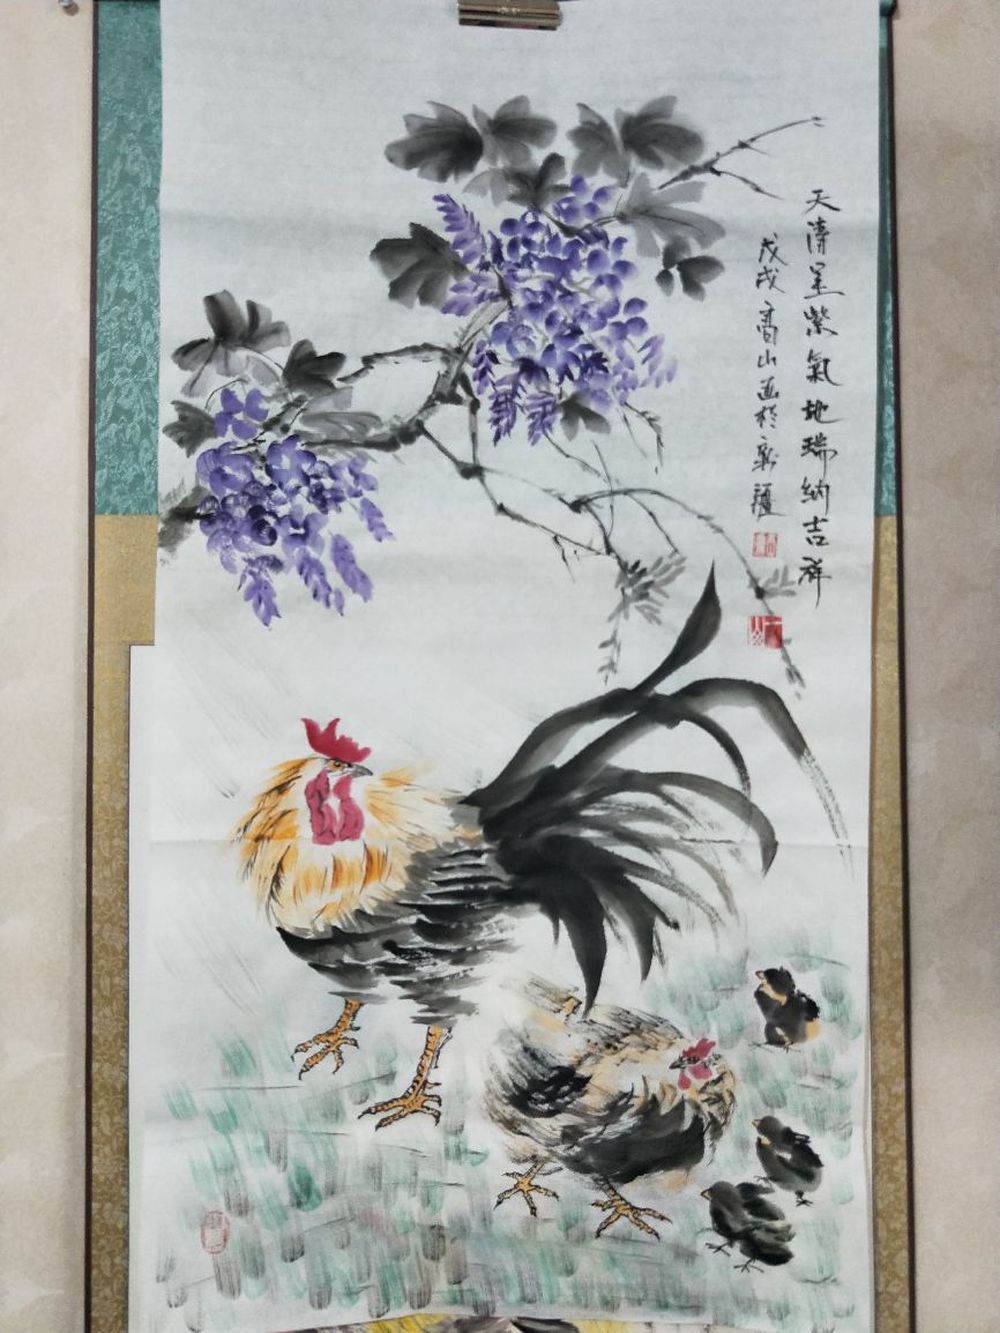 天清呈紫氣地瑞納吉祥
戊戌高山画於新疆